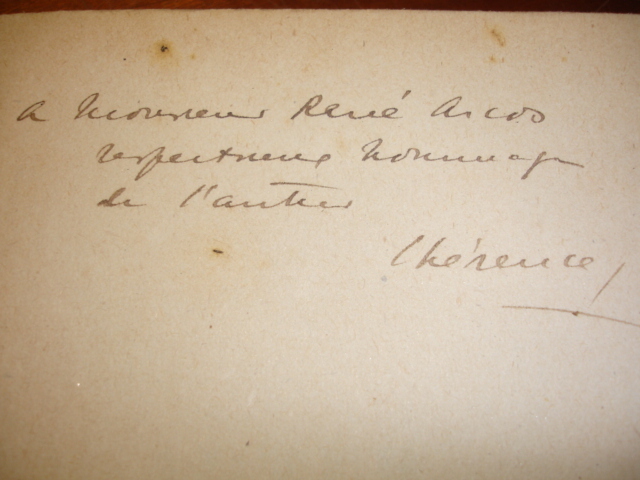 A Monsieur René Arcos
respectueux hommage
de l'auteur
Thérence